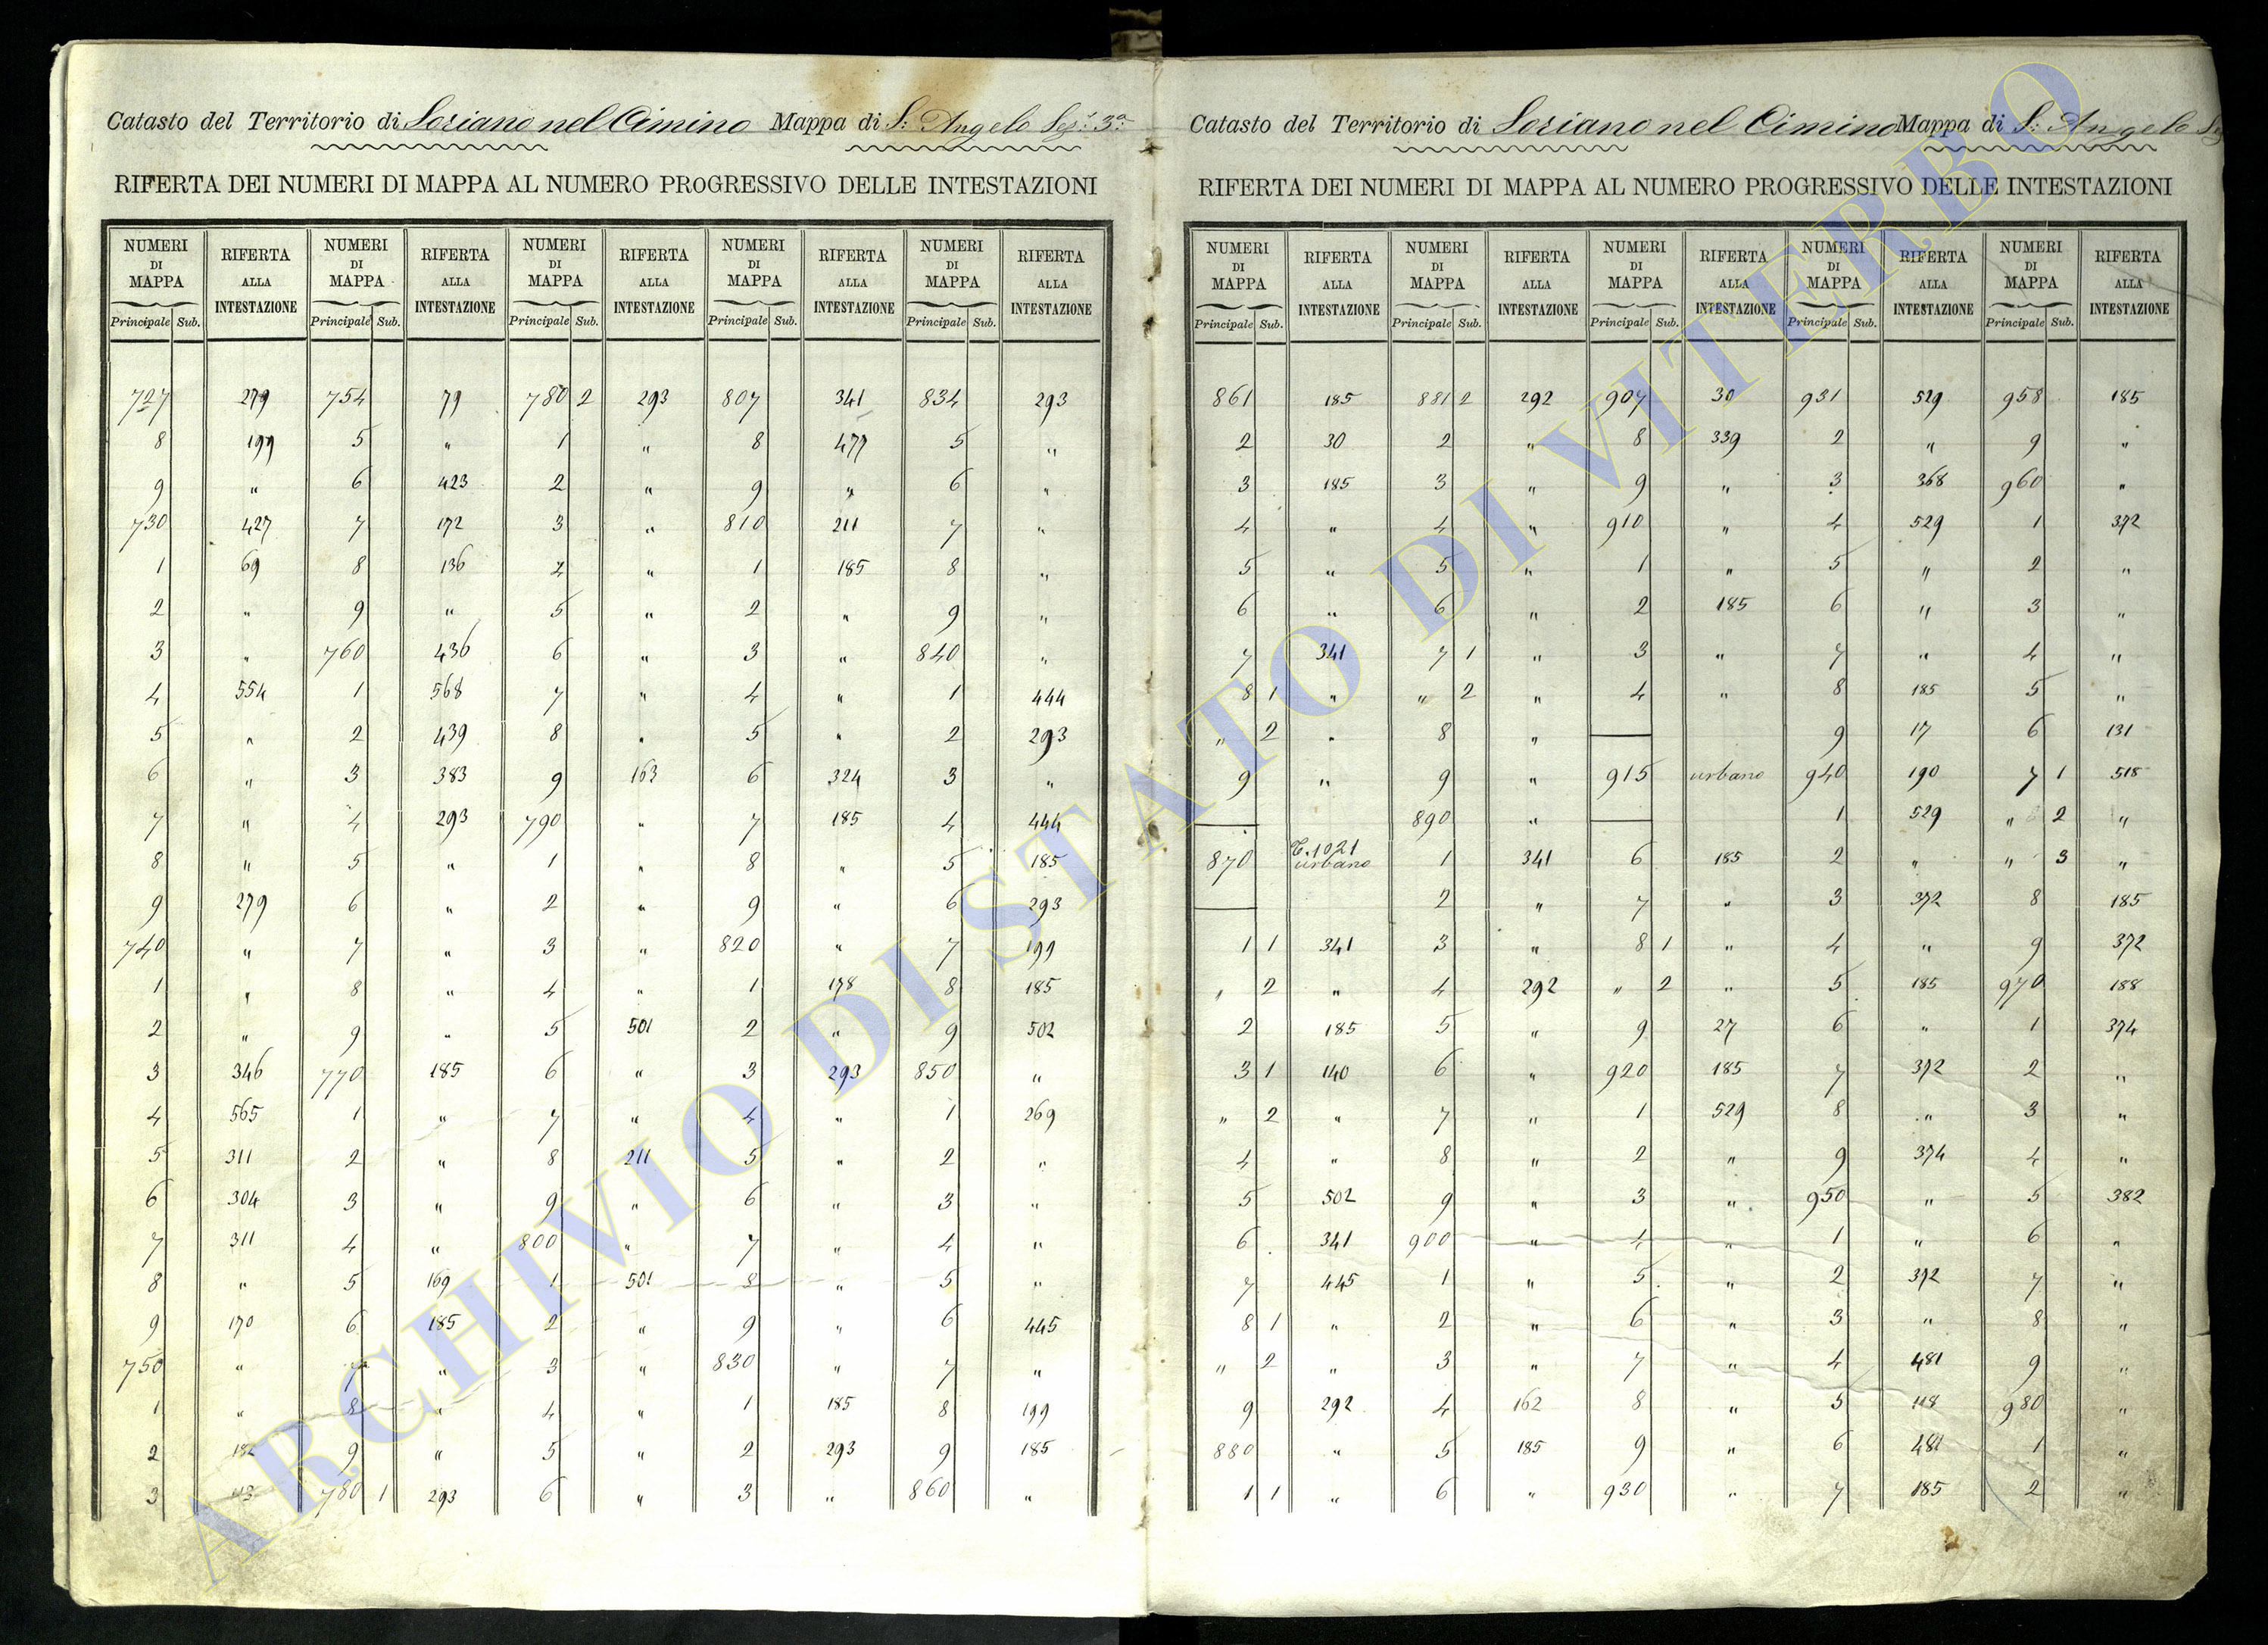 Catasto del Territorio di Soriano nel Cimino Mappa di S. Angelo Sez. 3a
RIFERTA DEI NUMERI DI MAPPA AL NUMERO PROGRESSIVO DELLE INTESTAZIONI
NUMERI DI MAPPA RIFERTA ALLA INTESTAZIONE NUMERI DI MAPPA RIFERTA ALLA INTESTAZIONE NUMERI DI MAPPA RIFERTA ALLA INTESTAZIONE NUMERI DI MAPPA RIFERTA ALLA INTESTAZIONE NUMERI DI MAPPA RIFERTA ALLA INTESTAZIONE
Principale Sub. Principale Sub. Principale Sub. Principale Sub. Principale Sub.
727 279 754 79 780 2 293 807 341 834 293
8 199 5 " 1 " 8 477 5 "
9 " 6 423 2 " 9 " 6 "
730 427 7 172 3 " 810 211 7 "
1 69 8 136 4 " 1 185 8 "
2 " 9 " 5 " 2 " 9 "
3 " 760 436 6 " 3 " 840 "
4 554 1 568 7 " 4 " 1 444
5 " 2 439 8 " 5 " 2 293
6 " 3 383 9 163 6 324 3 "
7 " 4 293 790 " 7 185 4 444
8 " 5 " 1 " 8 " 5 185
9 279 6 " 2 " 9 " 6 293
740 " 7 " 3 " 820 " 7 199
1 " 8 " 4 " 1 178 8 185
2 " 9 " 5 501 2 " 9 502
3 346 770 185 6 " 3 293 850 "
4 565 1 " 7 " 4 " 1 269
5 311 2 " 8 211 5 " 2 "
6 304 3 " 9 " 6 " 3 "
7 311 4 " 800 " 7 " 4 "
8 " 5 169 1 501 8 " 5 "
9 170 6 185 2 " 9 " 6 445
750 " 7 " 3 " 830 " 7 "
1 " 8 " 4 " 1 185 8 199
2 182 9 " 5 " 2 293 9 185
3 780 1 293 6 " 3 " 860 "
Catasto del Territorio di Soriano nel Cimino Mappa di S. Angelo
RIFERTA DEI NUMERI DI MAPPA AL NUMERO PROGRESSIVO DELLE INTESTAZIONI
NUMERI DI MAPPA RIFERTA ALLA INTESTAZIONE NUMERI DI MAPPA RIFERTA ALLA INTESTAZIONE NUMERI DI MAPPA RIFERTA ALLA INTESTAZIONE NUMERI DI MAPPA RIFERTA ALLA INTESTAZIONE NUMERI DI MAPPA RIFERTA ALLA INTESTAZIONE
Principale Sub. Principale Sub. Principale Sub. Principale Sub. Principale Sub.
861 185 881 2 292 907 30 931 529 958 185
2 30 2 " 8 339 2 " 9 "
3 185 3 " 9 " 3 368 960 "
4 " 4 " 910 " 4 529 1 372
5 " 5 " 1 " 5 " 2 "
6 " 6 " 2 185 6 " 3 "
7 341 7 1 " 3 " 7 " 4 "
8 1 " " 2 " 4 " 8 185 5 "
" 2 " 8 " 9 17 6 131
9 " 9 " 915 urbano 940 190 7 1 518
890 " 1 529 " 2 "
870 C. 1021 urbano 1 341 6 185 2 " " 3 "
2 " 7 " 3 372 8 185
1 1 341 3 " 8 1 " 4 " 9 372
" 2 " 4 292 " 2 " 5 185 970 188
2 185 5 " 9 27 6 " 1 374
3 1 140 6 " 920 185 7 372 2 "
" 2 " 7 " 1 529 8 " 3 "
4 " 8 " 2 " 9 374 4 "
5 502 9 " 3 " 950 " 5 382
6 341 900 " 4 " 1 " 6 "
7 445 1 " 5 " 2 372 7 "
8 1 " 2 " 6 " 3 " 8 "
" 2 " 3 " 7 " 4 481 9 "
9 292 4 162 8 " 5 118 980 "
880 " 5 185 9 " 6 481 1 "
1 1 " 6 " 930 " 7 185 2 "
ARCHIVIO DI STATO DI VITERBO